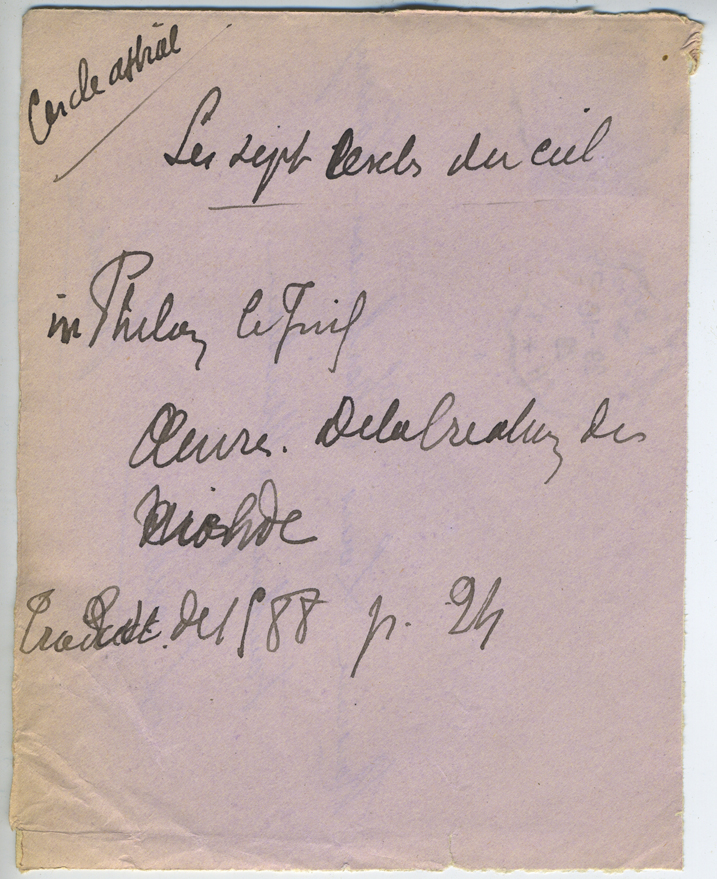 Cercle astral
Les sept Cercles du ciel
in Philon le Juif
Œuvres. De la Creation des
Monde
Traduct. de 1588 p. 24